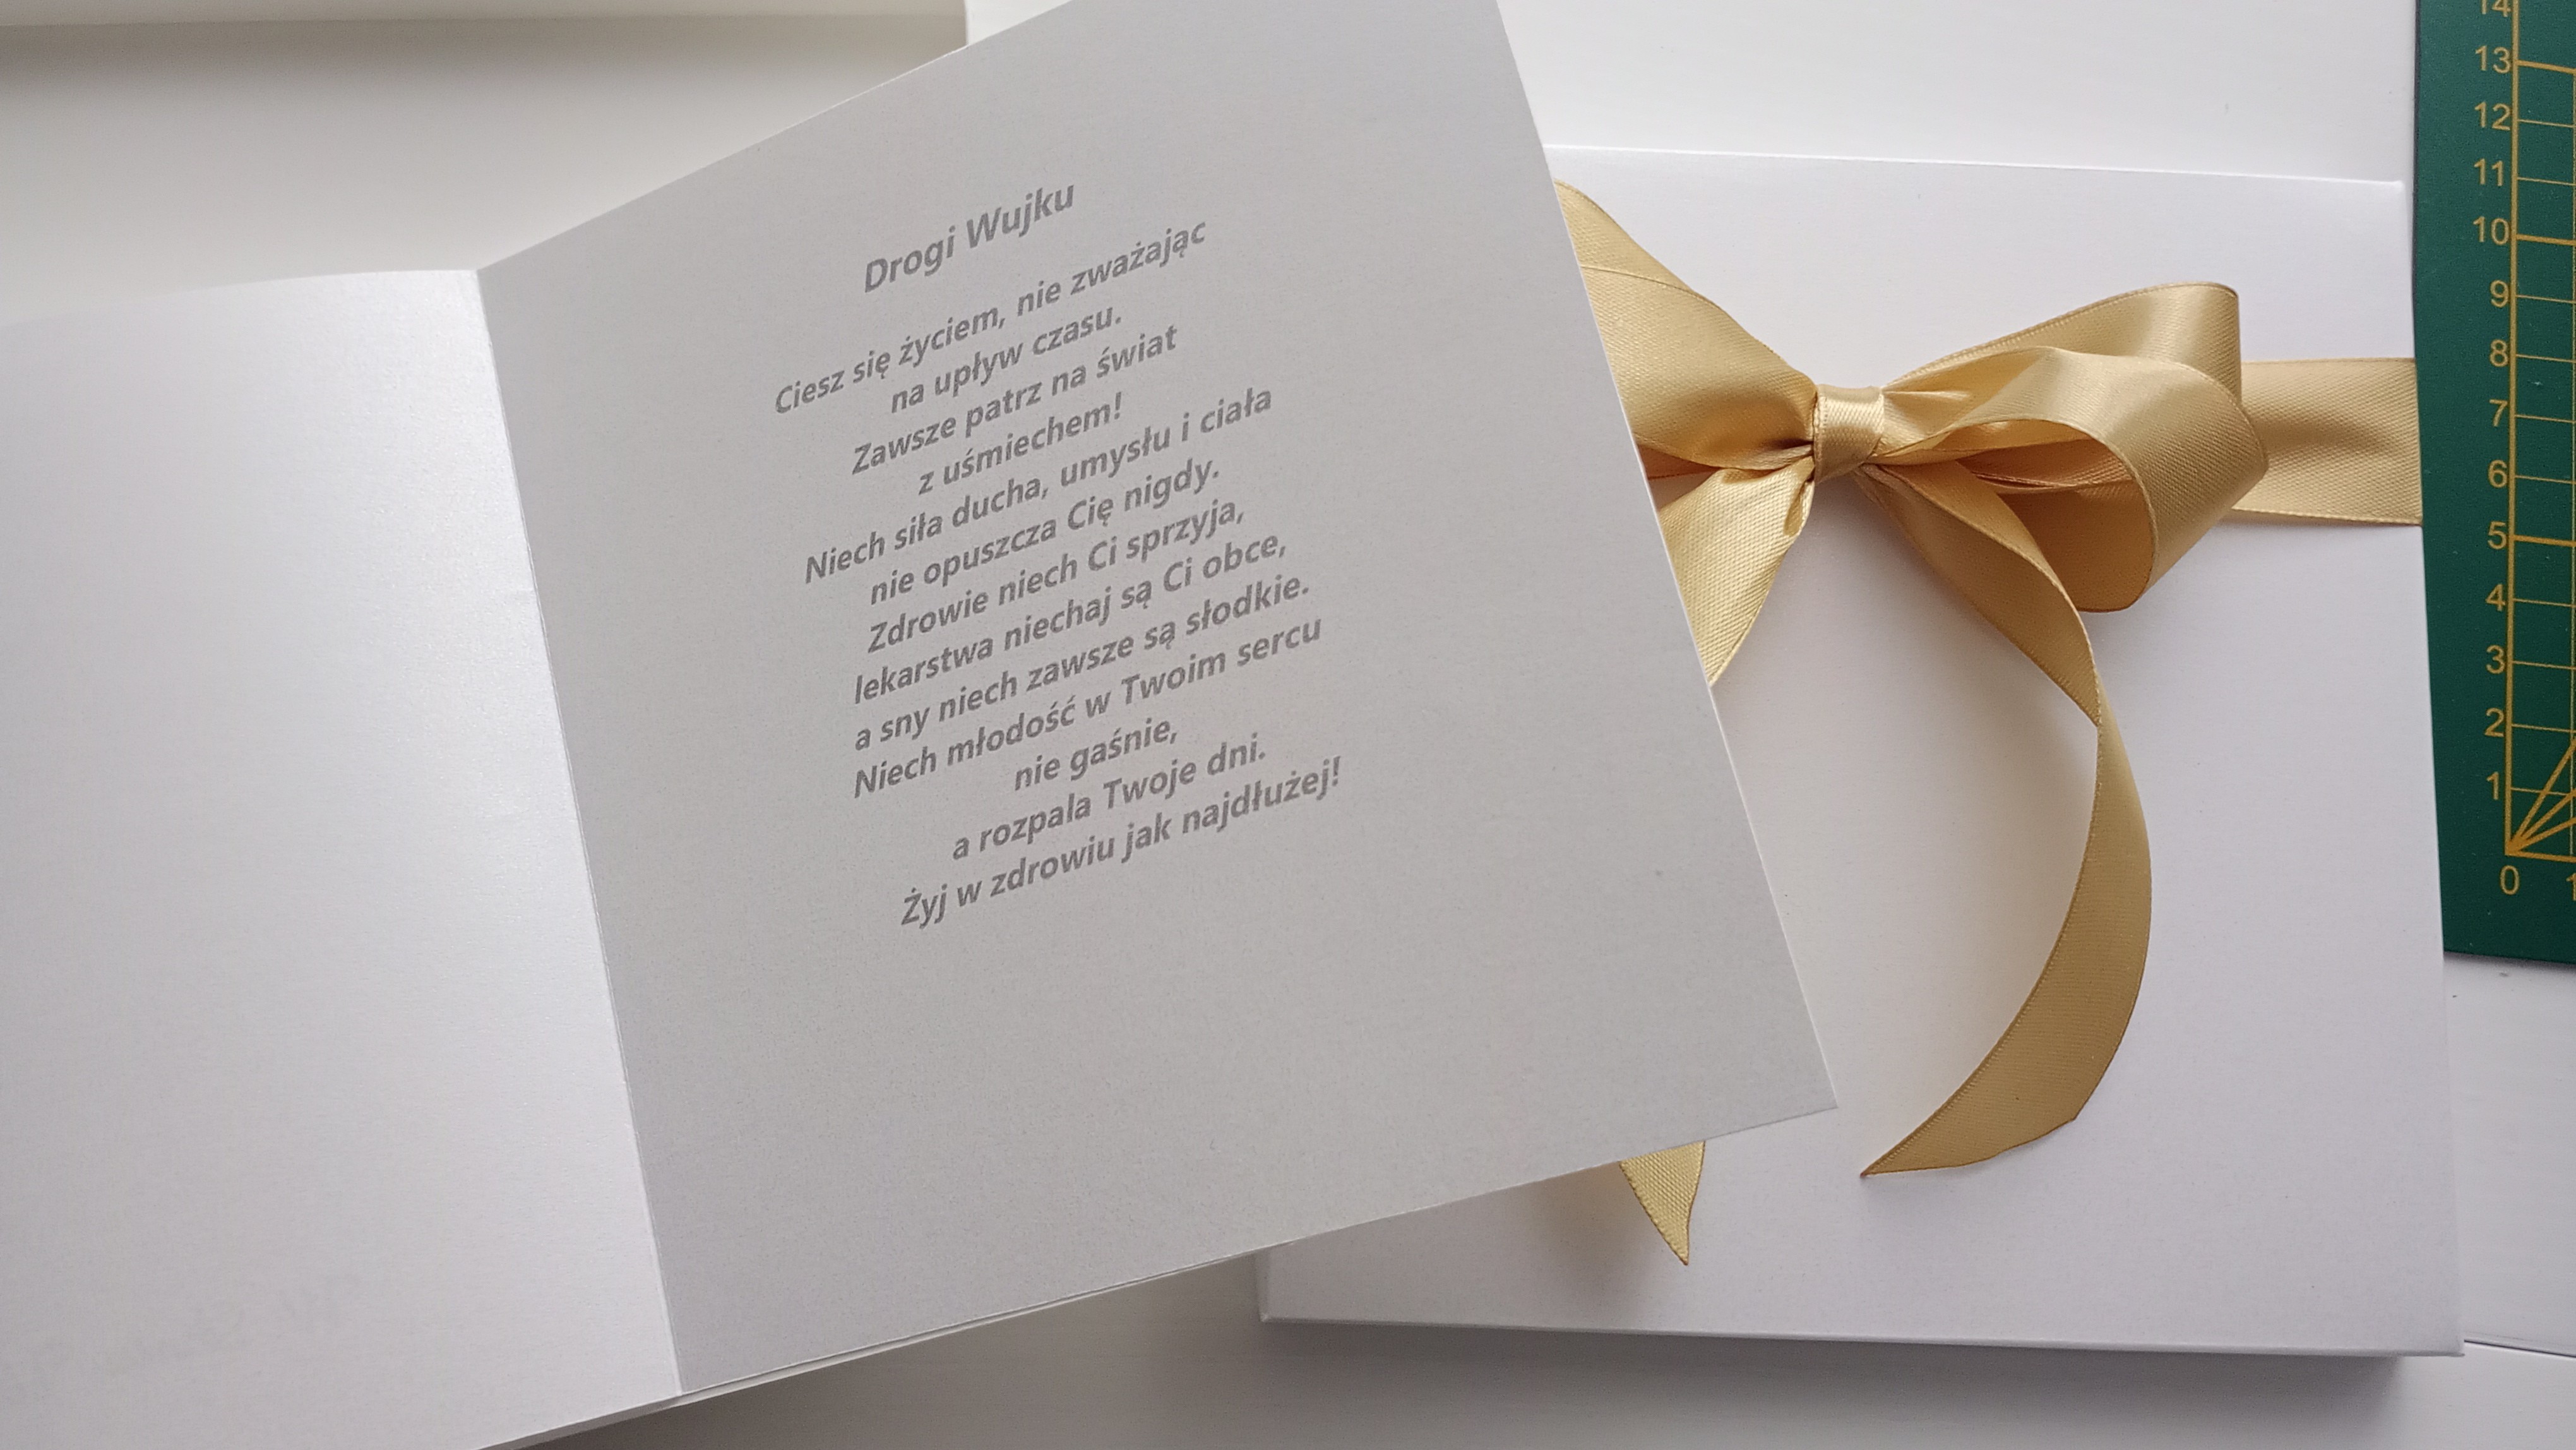 Drogi Wujku
Ciesz się życiem, nie zważając
na upływ czasu.
Zawsze patrz na świat
z uśmiechem!
Niech siła ducha, umysłu i ciała
nie opuszcza Cię nigdy.
Zdrowie niech Ci sprzyja,
lekarstwa niechaj są Ci obce,
a sny niech zawsze są słodkie.
Niech młodość w Twoim sercu
nie gaśnie,
a rozpala Twoje dni.
Żyj w zdrowiu jak najdłużej!
14
13
12
11
10
9
8
7
6
5
4
3
2
1
0 1